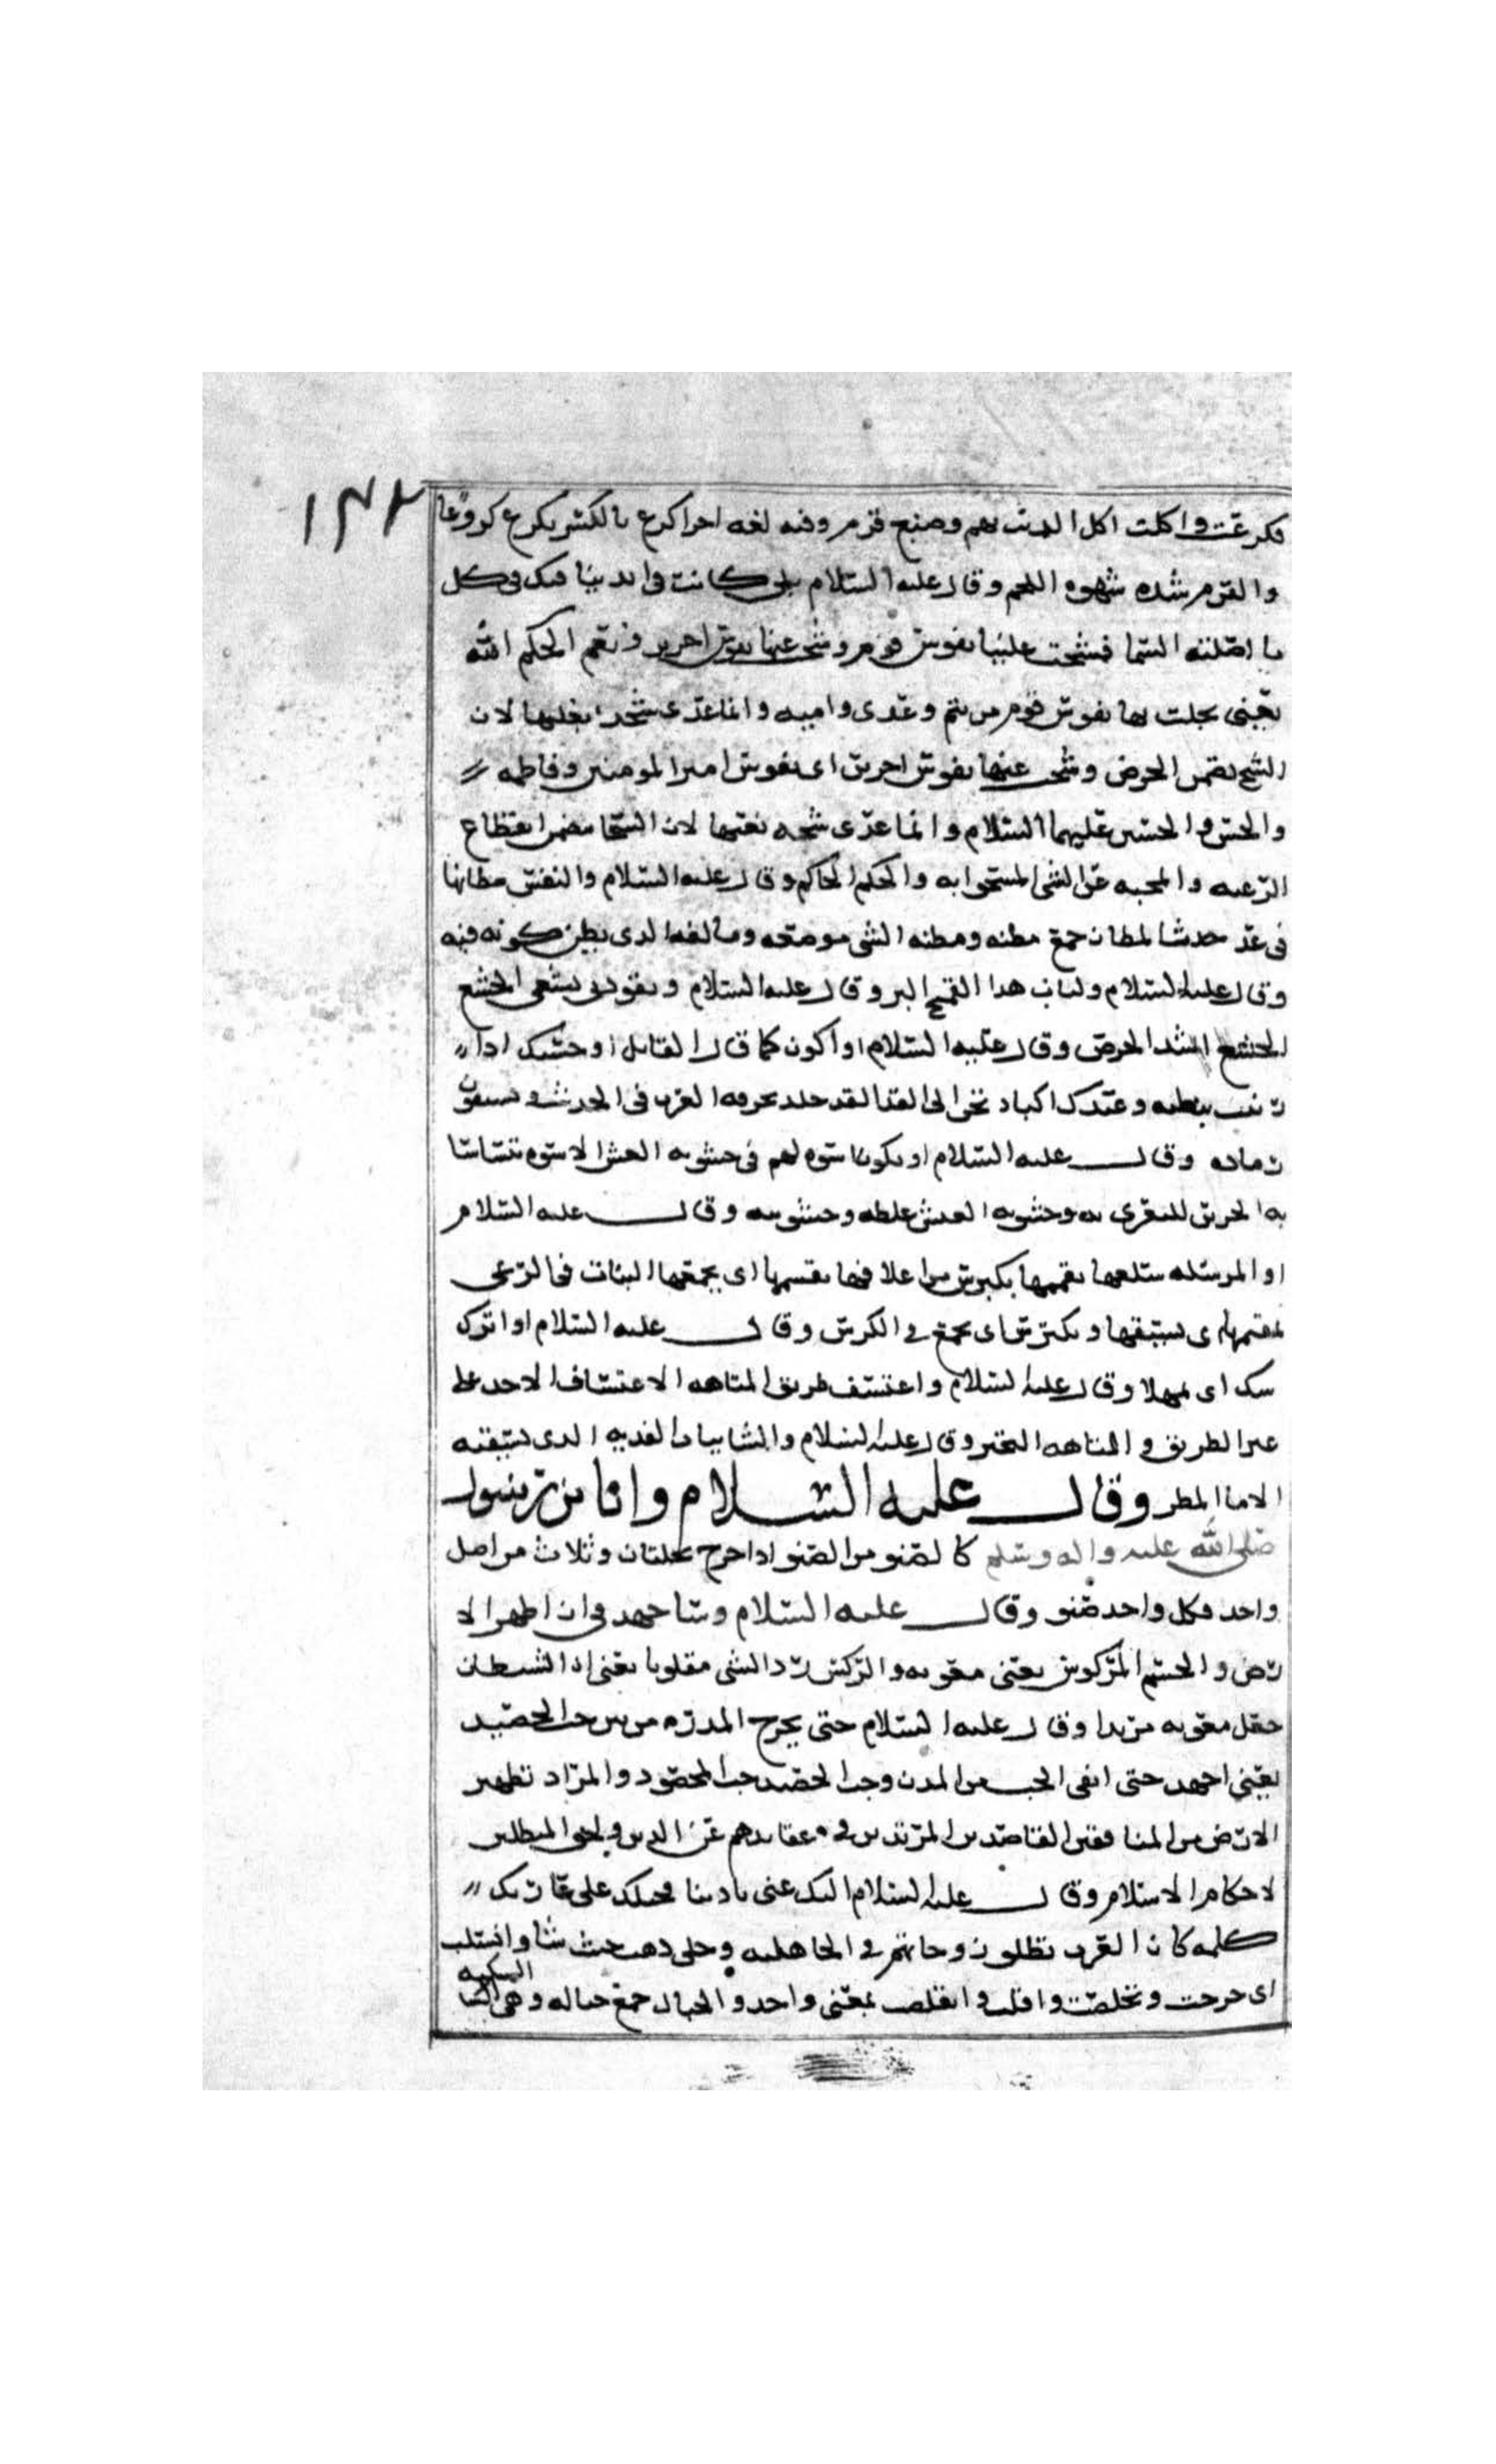 ١٣٢
فكرعت واكلت اكل الديب نهم وضبع قرم وفيه لغه اخرا كرع بالكسر يكرع كروعا
والقرم شده شهوه اللحم وقال عليه السلام بلى كانت في ايدينا فدك في كل
ما اظلته السما فشحت عليها نفوس قوم وشحت عنها نفوس اخرين ونعم الحكم الله
يعني بخلت بها نفوس قوم من تيم وعدي واميه وانما عدي شح بعليها لان
الشح يضمن الحرص وسخت عنها نفوس اخرين اي نفوس امير المومنين وفاطمه
والحسن والحسين عليهما السلام وانما عدى بعنها لان السخا مضمن انقطاع
الرغبه والمحبه عن الشي المسخوا به والحكم الحاكم وقال عليه السلام والنفس مظانها
في غد جدث المظان جمع مظنه ومظنه الشي موضعه ومالفه الدى يظن كونه فيه
وقال عليه السلام ولباب هدا القمح البر وقال عليه السلام ويقودني جشعي الجشع
الجشع اشد الحرص وقال عليه السلام او اكون كما قال القايل او حسبك ادا
تبيت ببطنه وعندك اكباد تحن الى القد القد جلد
وقال عليه السلام او يكونا اسوه لهم في جشوبه العيش الاسوه
به الحزين للتعزي به وجشوبه العيش غلظه وخشونته وقال عليه السلام
او المرسله شغلها تقممها تكترش من اعلافها تقممها اي
اي وتكترش اي تجمع في الكرش وقال عليه السلام او اترك
سدى اي مهملا وقال عليه السلام واعتسف طريق المتاهه الاعتساف الاخد على
غير الطريق والمتاهه وقال عليه السلام والنابتات العديه الدى لا يسقيه
الا ما المطر وقال عليه السلام وانا من رسول
صلى الله عليه واله وسلم كالصنو من الصنو ادا خرج نخلتان وثلاث من اصل
واحد فكل واحد صنو وقال عليه السلام وساجهد في ان اطهر الا
رض والجسم المركوس يعني معويه والركس رد الشي مقلوبا يعني ان الشيطان
جعل معويه مرتدا وقال عليه السلام حتى يخرج المدره من بين حب الحصيد
يعني اجهد حتى انقي الحب من المدر وحب الحصيد حب المحصود والمراد تطهير
الارض من المنافقين القاصدين المرتدين في عقايدهم عن الدين المبطلين
لاحكام الاسلام وقال عليه السلام اليك عني يا دنيا فحبلك على غاربك
كلمه كان العرب يطلقون زوجاتهم في الجاهليه وخلي دهب حيث شا وانسلت
اي خرجت وتخلصت وافلت وانفلت بمعنى واحد والحبال جمع حباله وهي الشبكه